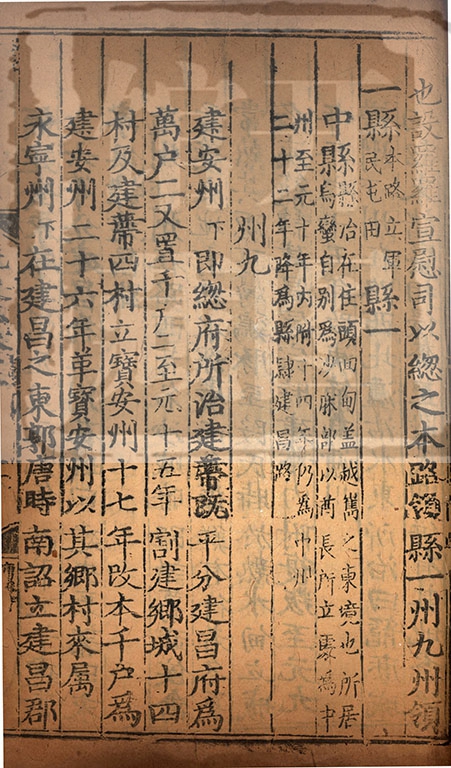 也設羅羅宣慰司以總之本路領縣一州九州領
一縣本路立軍
民屯田縣一
中縣縣治在住頭回甸盖越嶲之東境也所居
烏蠻自别為沙麻部以酋長所立處為中
州至元十年内附十四年仍為中州
二十二年降為縣隸建昌路
州九
建安州下即總府所治建蒂既平分建昌府為
萬户二又置千户二至元十五年割建鄉城十四
村及建蒂四村立寶安州十七年改本千户為
建安州二十六年革寶安州以其鄉村來屬
永寧州下在建昌之東郭唐時南詔立建昌郡